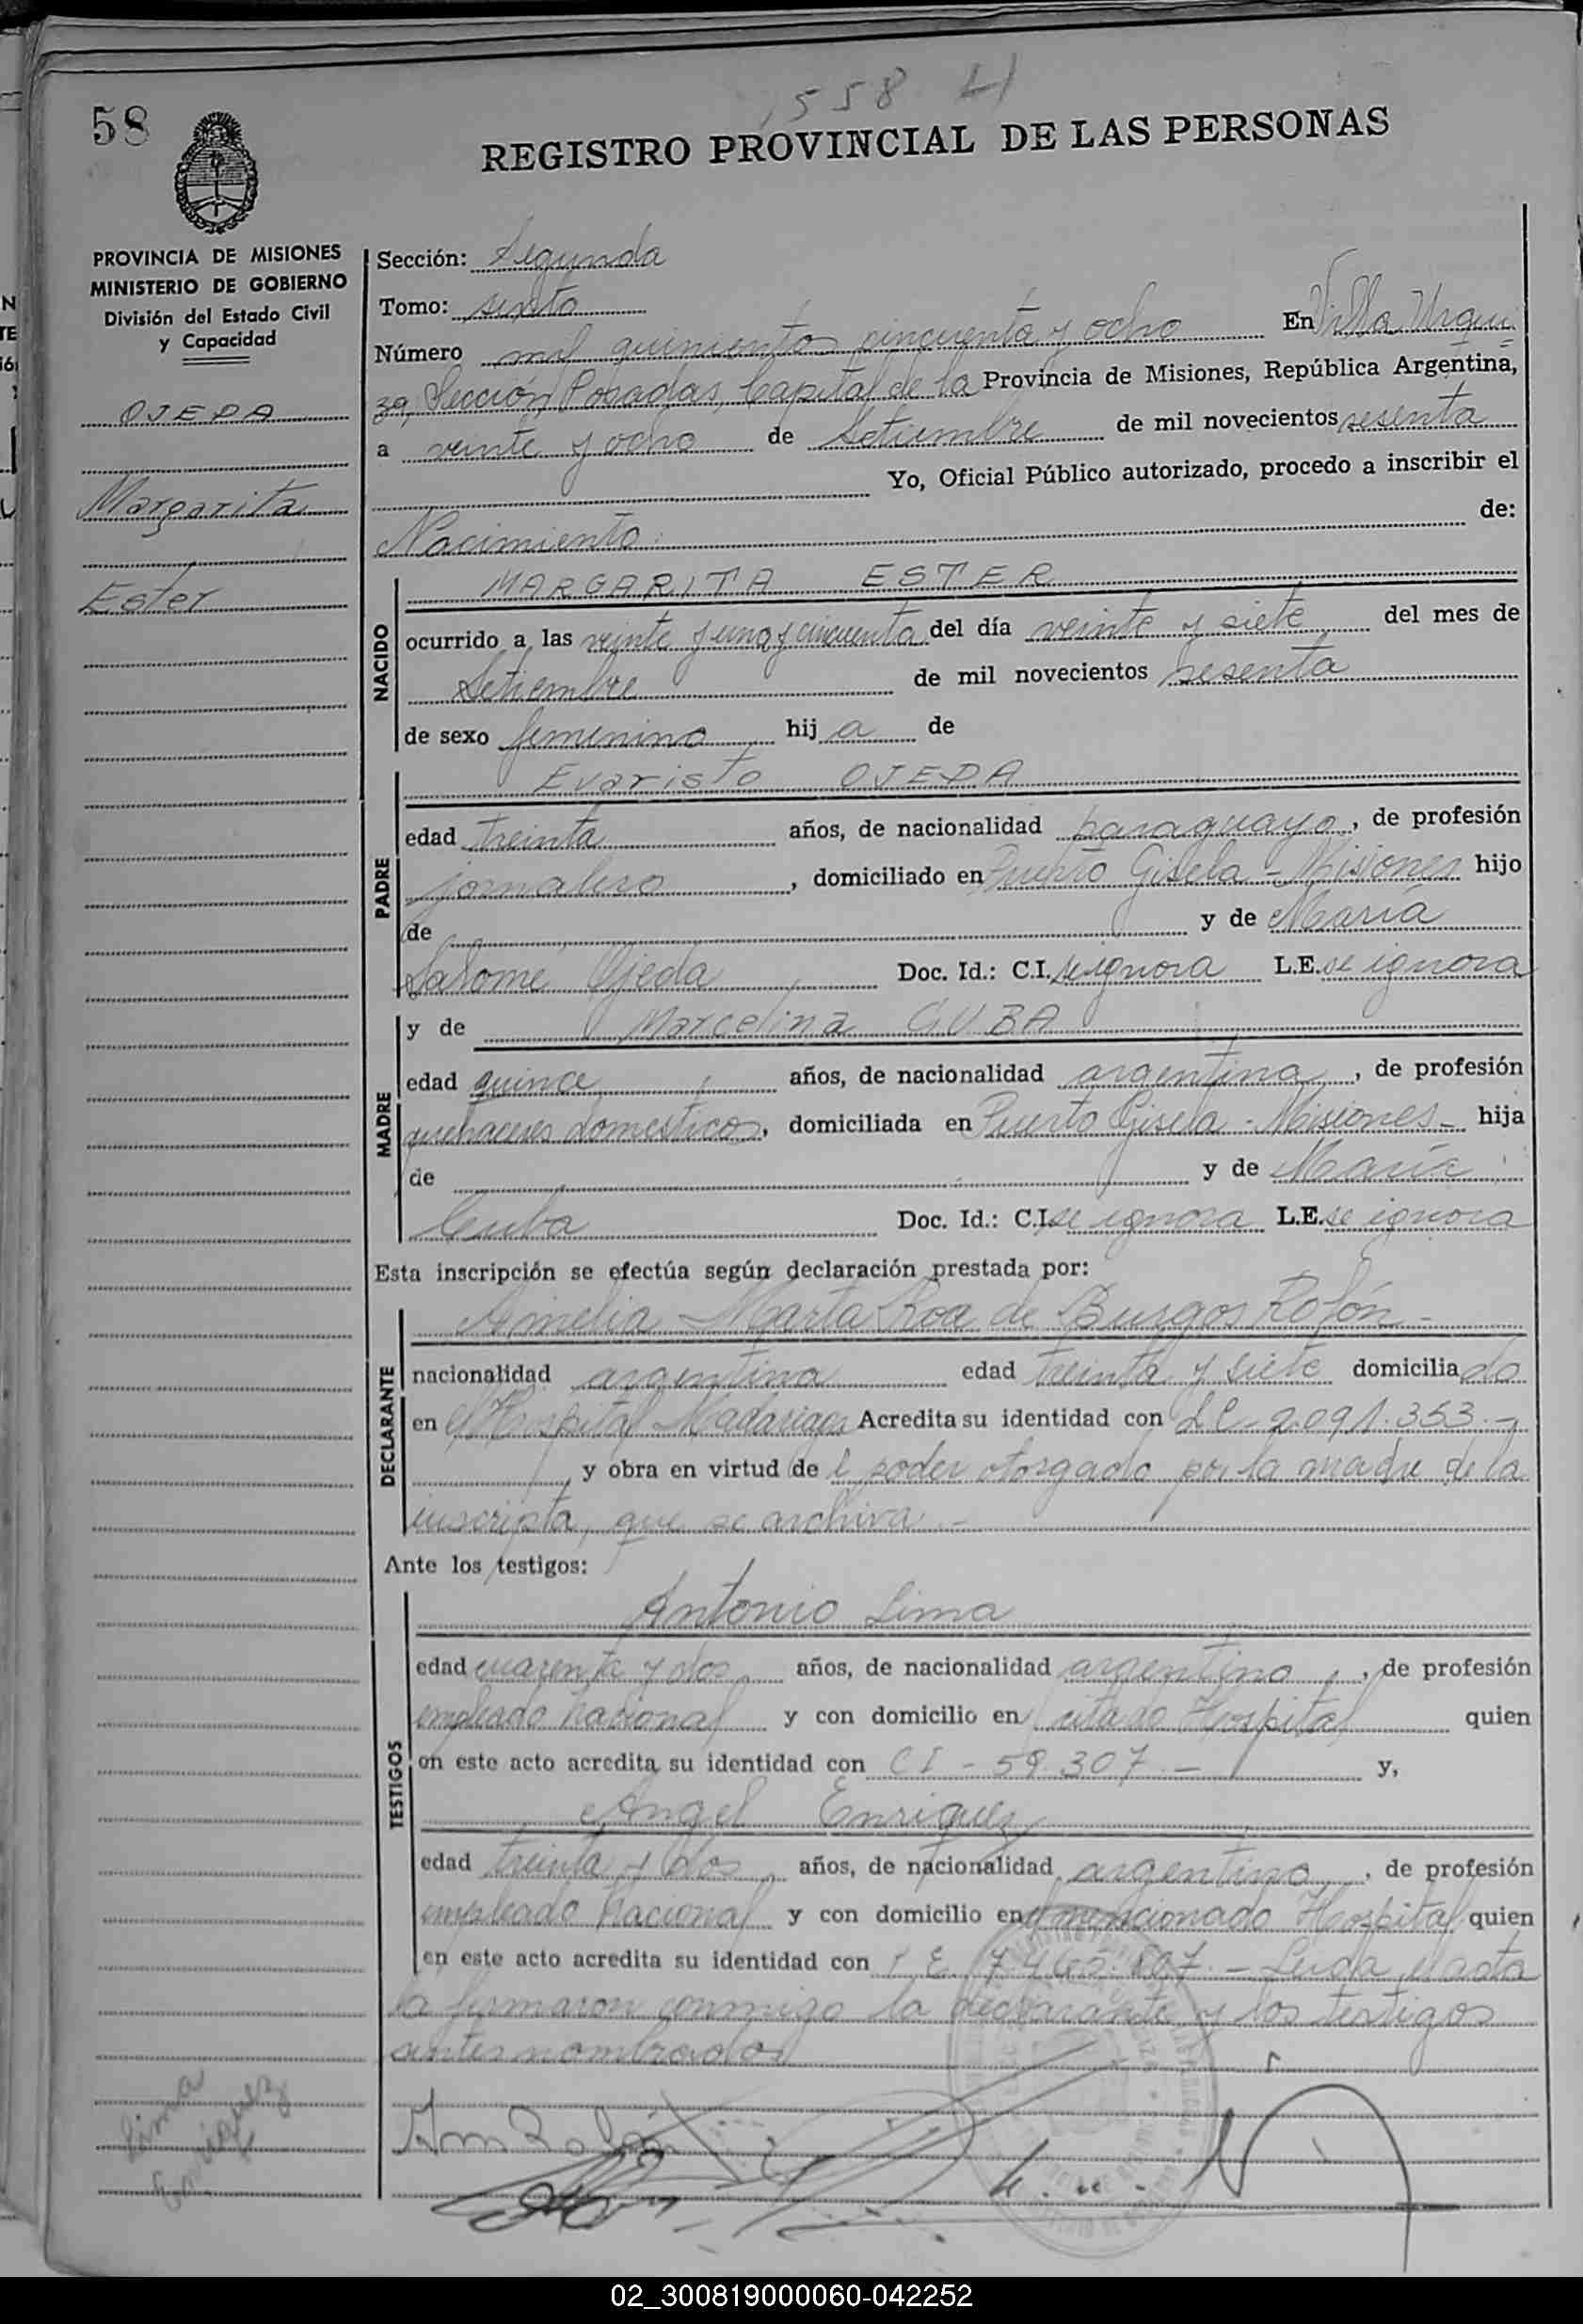 1558 L1
58
REGISTRO PROVINCIAL DE LAS PERSONAS
PROVINCIA DE MISIONES
MINISTERIO DE GOBIERNO
División del Estado Civil
y Capacidad
OJEDA
Margarita
Ester
Sección: Segunda
Tomo: sexto
Número mil quinientos cincuenta y ocho En Villa Urqui
za, Sección Posadas, Capital de la Provincia de Misiones, República Argentina,
a veinte y ocho de Setiembre de mil novecientos sesenta
Yo, Oficial Público autorizado, procedo a inscribir el
Nacimiento de:
NACIDO
MARGARITA ESTER
ocurrido a las veinte y una y cincuenta del día veinte y siete del mes de
Setiembre de mil novecientos sesenta
de sexo femenino hij a de
PADRE
Evaristo OJEDA
edad treinta años, de nacionalidad paraguayo, de profesión
jornalero, domiciliado en Puerto Gisela - Misiones hijo
de y de María
Salomé Ojeda Doc. Id.: C.I. se ignora L.E. se ignora
MADRE
y de Marcelina CUBA
edad quince años, de nacionalidad argentina, de profesión
quehaceres domésticos, domiciliada en Puerto Gisela - Misiones - hija
de y de María
Cuba Doc. Id.: C.I. se ignora L.E. se ignora
Esta inscripción se efectúa según declaración prestada por:
DECLARANTE
Amelia Marta Roa de Burgos Rolón -
nacionalidad argentina edad treinta y siete domicilia do
en el Hospital Madariaga Acredita su identidad con LC - 2.091.353 . -
y obra en virtud de l poder otorgado por la madre de la
inscripta, que se archiva. -
Ante los testigos:
TESTIGOS
Antonio Lima
edad cuarenta y dos años, de nacionalidad argentino, de profesión
empleado Nacional y con domicilio en citado Hospital quien
en este acto acredita su identidad con CI - 59.307 . - y,
Angel Enriquez
edad treinta y dos años, de nacionalidad argentino, de profesión
empleado Nacional y con domicilio en el mencionado Hospital quien
en este acto acredita su identidad con E. - Leida el acta
la firmaron conmigo la declarante y los testigos
antes nombrados
Lima
Enriquez
02_300819000060-042252